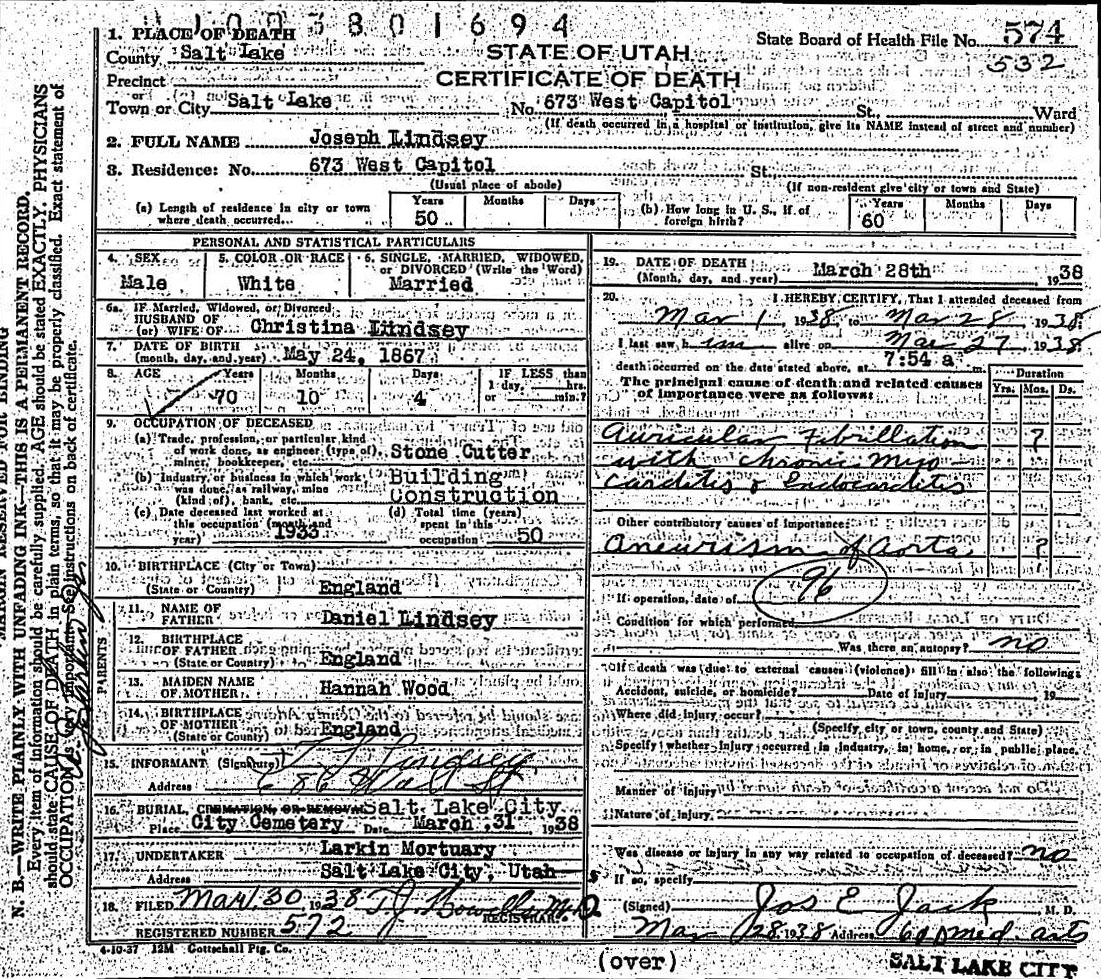 1003801694
1. PLACE OF DEATH
County Salt Lake
Precinct
or
Town or City Salt Lake
STATE OF UTAH
CERTIFICATE OF DEATH
State Board of Health File No. 574
532
No. 673 West Capitol St., Ward
(If death occurred in a hospital or institution, give its NAME instead of street and number)
2. FULL NAME Joseph Lindsey
3. Residence: No. 673 West Capitol St.
(Usual place of abode)
(If non-resident give city or town and State)
(a) Length of residence in city or town where death occurred
Years 50 Months Days
(b) How long in U. S., if of foreign birth?
Years 60 Months Days
PERSONAL AND STATISTICAL PARTICULARS
4. SEX
Male
5. COLOR OR RACE
White
6. SINGLE, MARRIED, WIDOWED,
or DIVORCED (Write the Word)
Married
6a. IF Married, Widowed, or Divorced
HUSBAND OF
(or) WIFE OF Christina Lindsey
7. DATE OF BIRTH
(month, day, and year) May 24, 1867
8. AGE Years Months Days IF LESS than
1 day, hrs.
70 10 4 or min.?
9. OCCUPATION OF DECEASED
(a) Trade, profession, or particular kind
of work done, as engineer (type of),
miner, bookkeeper, etc. Stone Cutter
(b) Industry, or business in which work
was done, as railway, mine
(kind of), bank, etc.
Building
Construction
(c) Date deceased last worked at
this occupation (month and
year) 1933
(d) Total time (years)
spent in this
occupation 50
10. BIRTHPLACE (City or Town)
(State or Country) England
PARENTS
11. NAME OF
FATHER Daniel Lindsey
12. BIRTHPLACE
OF FATHER
(State or Country) England
13. MAIDEN NAME
OF MOTHER Hannah Wood
14. BIRTHPLACE
OF MOTHER
(State or County) England
15. INFORMANT (Signature) Lindsey
Address
16. BURIAL, CREMATION, OR REMOVAL Salt Lake City
Place City Cemetery Date March 31 1938
17. UNDERTAKER Larkin Mortuary
Address Salt Lake City, Utah
18. FILED Mar. 30 1938 T. J. Howells M.D.
REGISTRAR
REGISTERED NUMBER 572
4-10-37 12M Gottschall Ptg. Co.
19. DATE OF DEATH
(Month, day, and year) March 28th 1938
20. I HEREBY CERTIFY, That I attended deceased from
Mar 1 1938, to Mar 28, 1938.
I last saw him alive on Mar 27 1938
death occurred on the date stated above, at 7:54 a m.
The principal cause of death and related causes
of importance were as follows:
Duration
Yrs. Mos. Ds.
Auricular Fibrillation ?
with chronic Myo-
carditis & Endocarditis
Other contributory causes of importance:
Aneurism of Aorta ?
96
If operation, date of
Condition for which performed
Was there an autopsy? no
If death was due to external causes (violence) fill in also the following:
Accident, suicide, or homicide? Date of injury 19
Where did injury occur?
(Specify city, or town, county and State)
Specify whether injury occurred in industry, in home, or in public place.
Manner of injury
Nature of injury
Was disease or injury in any way related to occupation of deceased? no
If so, specify
(Signed) Jos E Jack M. D.
Mar 28 1938 Address 600 Med. arts
SALT LAKE CITY
(over)
MARGIN RESERVED FOR BINDING
N. B.—WRITE PLAINLY WITH UNFADING INK—THIS IS A PERMANENT RECORD.
Every item of information should be carefully supplied. AGE should be stated EXACTLY. PHYSICIANS
should state CAUSE OF DEATH in plain terms, so that it may be properly classified. Exact statement of
OCCUPATION is very important. See instructions on back of certificate.